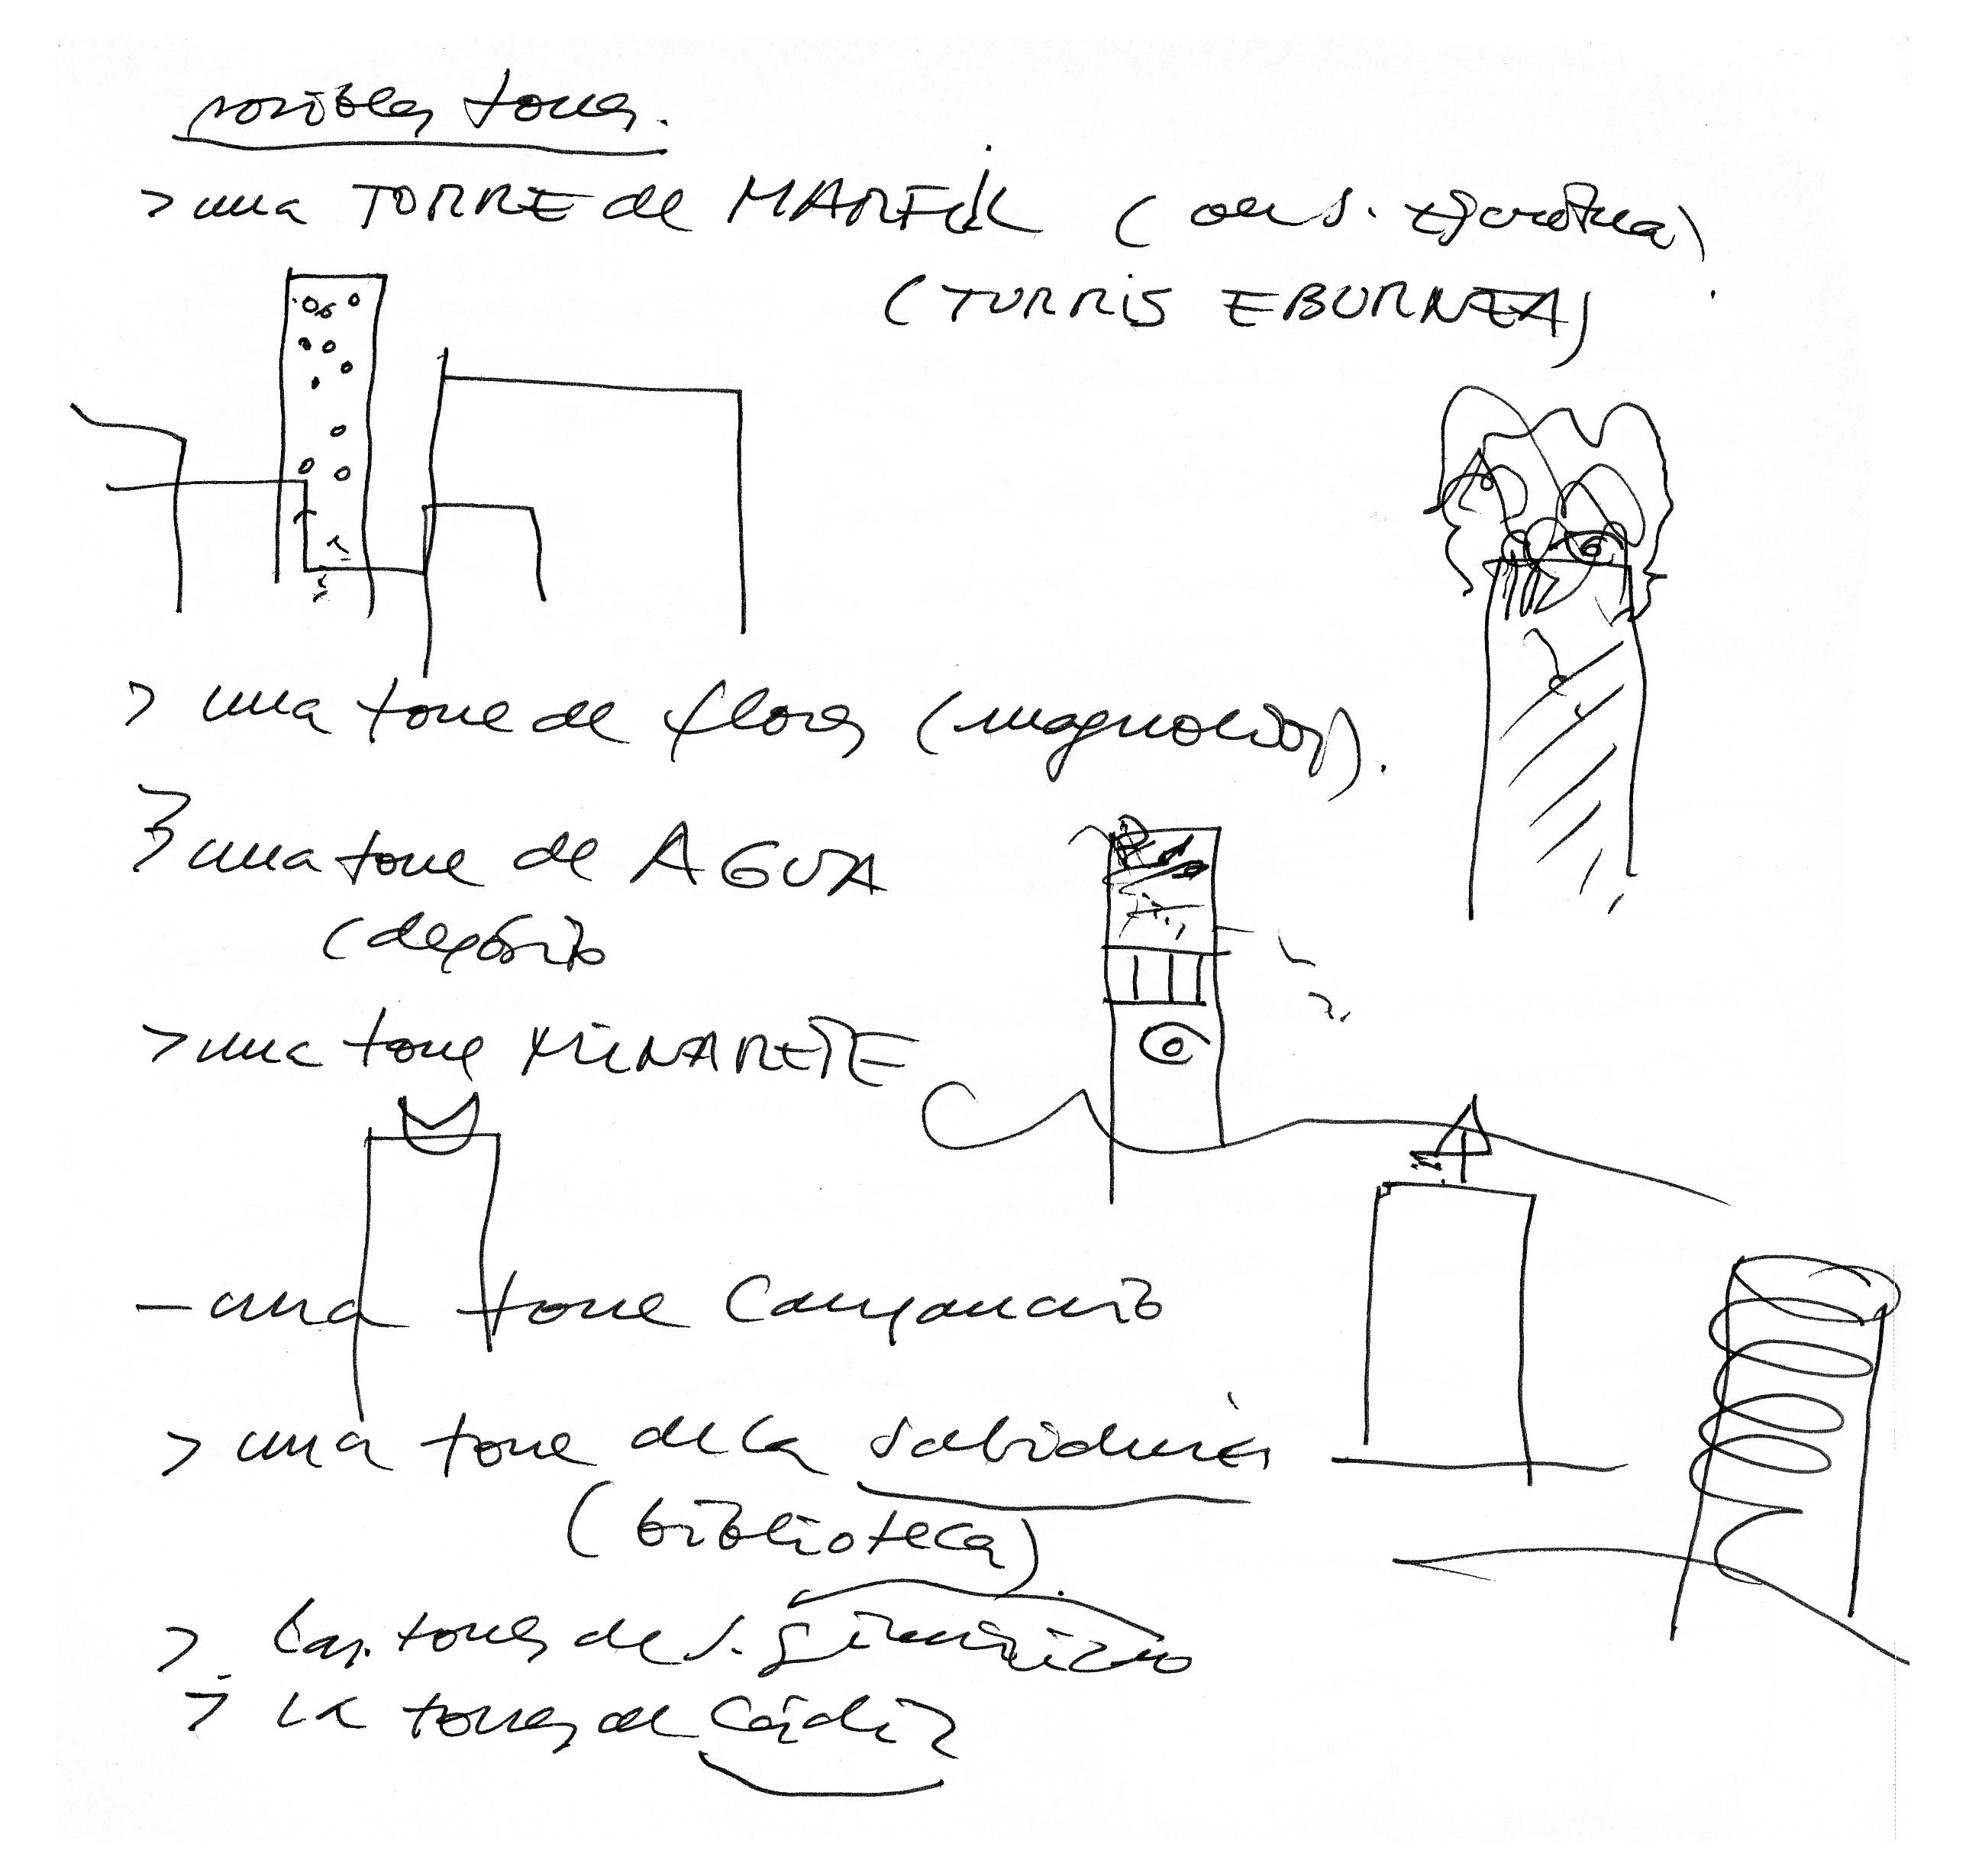 posibles torres.
> una TORRE de MARFIL (
(TURRIS EBURNEA)
> una torre de flores (magnolios).
> una torre de AGUA
(depósito
> una torre MINARETE
– una torre Campanario
> una torre de la sabiduría
(biblioteca)
> Las torres de S. Gimignano
> las torres de Cádiz